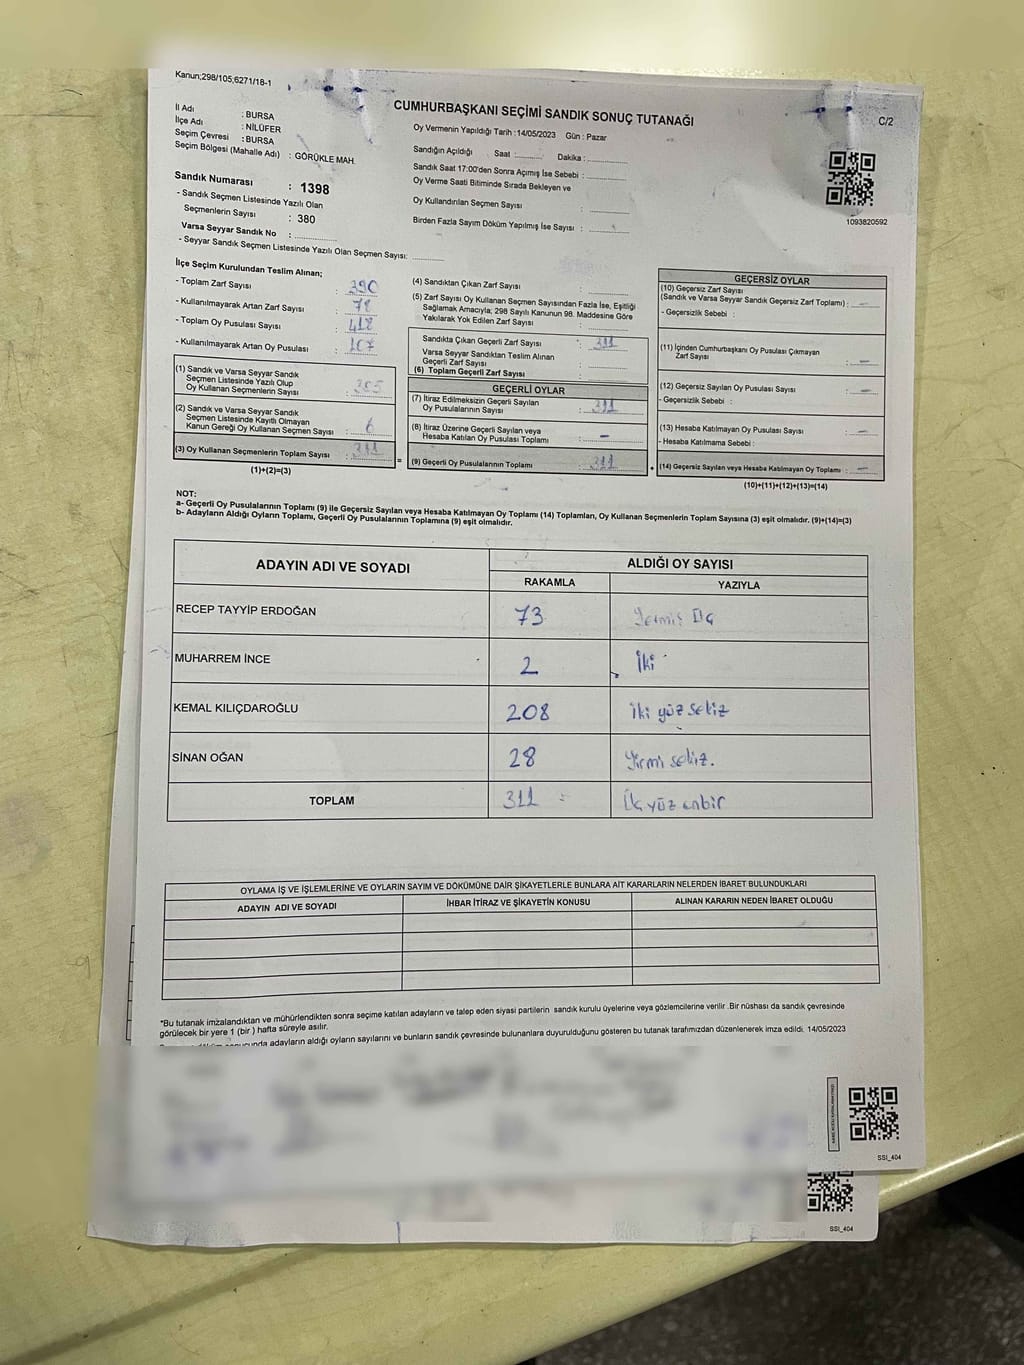 Kanun;298/105,6271/18-1
CUMHURBAŞKANI SEÇİMİ SANDIK SONUÇ TUTANAĞI
C/2
İl Adı : BURSA
İlçe Adı : NİLÜFER
Seçim Çevresi : BURSA
Seçim Bölgesi (Mahalle Adı) : GÖRÜKLE MAH.
Sandık Numarası : 1398
- Sandık Seçmen Listesinde Yazılı Olan
Seçmenlerin Sayısı : 380
Varsa Seyyar Sandık No : ............
- Seyyar Sandık Seçmen Listesinde Yazılı Olan Seçmen Sayısı: ............
Oy Vermenin Yapıldığı Tarih :14/05/2023 Gün : Pazar
Sandığın Açıldığı Saat :......... Dakika :............
Sandık Saat 17:00'den Sonra Açımış İse Sebebi : ............
Oy Verme Saati Bitiminde Sırada Bekleyen ve
Oy Kullandırılan Seçmen Sayısı : ............
Birden Fazla Sayım Döküm Yapılmış İse Sayısı : ............
1093820592
İlçe Seçim Kurulundan Teslim Alınan;
- Toplam Zarf Sayısı : 390
- Kullanılmayarak Artan Zarf Sayısı :
- Toplam Oy Pusulası Sayısı : 418
- Kullanılmayarak Artan Oy Pusulası : 107
(1) Sandık ve Varsa Seyyar Sandık
Seçmen Listesinde Yazılı Olup
Oy Kullanan Seçmenlerin Sayısı : 305
(2) Sandık ve Varsa Seyyar Sandık
Seçmen Listesinde Kayıtlı Olmayan
Kanun Gereği Oy Kullanan Seçmen Sayısı : 6
(3) Oy Kullanan Seçmenlerin Toplam Sayısı : 311
(1)+(2)=(3)
(4) Sandıktan Çıkan Zarf Sayısı :
(5) Zarf Sayısı Oy Kullanan Seçmen Sayısından Fazla İse, Eşitliği
Sağlamak Amacıyla; 298 Sayılı Kanunun 98. Maddesine Göre
Yakılarak Yok Edilen Zarf Sayısı :
Sandıkta Çıkan Geçerli Zarf Sayısı : 311
Varsa Seyyar Sandıktan Teslim Alınan
Geçerli Zarf Sayısı :
(6) Toplam Geçerli Zarf Sayısı :
GEÇERLİ OYLAR
(7) İtiraz Edilmeksizin Geçerli Sayılan
Oy Pusulalarının Sayısı : 311
(8) İtiraz Üzerine Geçerli Sayılan veya
Hesaba Katılan Oy Pusulası Toplamı : -
(9) Geçerli Oy Pusulalarının Toplamı : 311
GEÇERSİZ OYLAR
(10) Geçersiz Zarf Sayısı
(Sandık ve Varsa Seyyar Sandık Geçersiz Zarf Toplamı) : -
- Geçersizlik Sebebi :
(11) İçinden Cumhurbaşkanı Oy Pusulası Çıkmayan
Zarf Sayısı : -
(12) Geçersiz Sayılan Oy Pusulası Sayısı : -
- Geçersizlik Sebebi :
(13) Hesaba Katılmayan Oy Pusulası Sayısı : -
- Hesaba Katılmama Sebebi :
(14) Geçersiz Sayılan veya Hesaba Katılmayan Oy Toplamı : -
(10)+(11)+(12)+(13)=(14)
NOT:
a- Geçerli Oy Pusulalarının Toplamı (9) ile Geçersiz Sayılan veya Hesaba Katılmayan Oy Toplamı (14) Toplamları, Oy Kullanan Seçmenlerin Toplam Sayısına (3) eşit olmalıdır. (9)+(14)=(3)
b- Adayların Aldığı Oyların Toplamı, Geçerli Oy Pusulalarının Toplamına (9) eşit olmalıdır.
ADAYIN ADI VE SOYADI ALDIĞI OY SAYISI
RAKAMLA YAZIYLA
RECEP TAYYİP ERDOĞAN 73 Yetmiş Üç
MUHARREM İNCE 2 İki
KEMAL KILIÇDAROĞLU 208 İki yüz sekiz
SİNAN OĞAN 28 Yirmi sekiz.
TOPLAM 311 Üç yüz onbir
OYLAMA İŞ VE İŞLEMLERİNE VE OYLARIN SAYIM VE DÖKÜMÜNE DAİR ŞİKAYETLERLE BUNLARA AİT KARARLARIN NELERDEN İBARET BULUNDUKLARI
ADAYIN ADI VE SOYADI İHBAR İTİRAZ VE ŞİKAYETİN KONUSU ALINAN KARARIN NEDEN İBARET OLDUĞU
*Bu tutanak imzalandıktan ve mühürlendikten sonra seçime katılan adayların ve talep eden siyasi partilerin sandık kurulu üyelerine veya gözlemcilerine verilir .Bir nüshası da sandık çevresinde
görülecek bir yere 1 (bir ) hafta süreyle asılır.
adayların aldığı oyların sayılarını ve bunların sandık çevresinde bulunanlara duyurulduğunu gösteren bu tutanak tarafımızdan düzenlenerek imza edildi. 14/05/2023
SSI_404
SSI_404